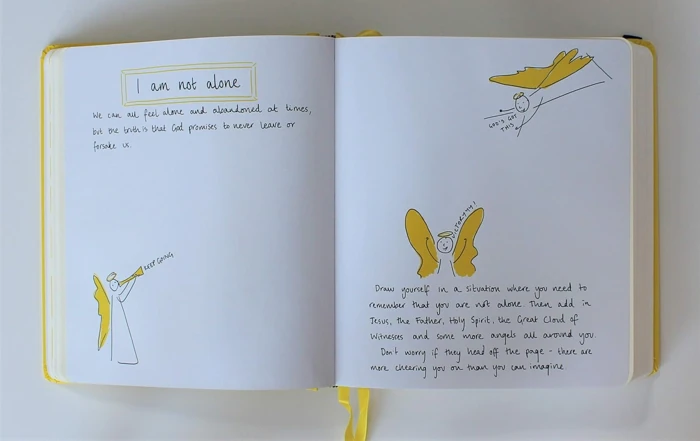 I am not alone
We can all feel alone and abandoned at times,
but the truth is that God promises to never leave or
forsake us.
KEEP GOING
GOD'S GOT
THIS
VICTORYYY!
Draw yourself in a situation where you need to
remember that you are not alone. Then add in
Jesus, the Father, Holy Spirit, the Great Cloud of
Witnesses and some more angels all around you.
Don't worry if they head off the page - there are
more cheering you on than you can imagine